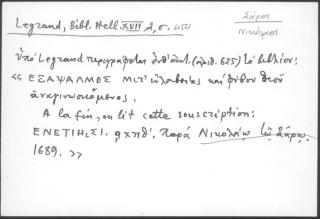 Legrand, Bibl. Hell. XVII 2, σ. 454
Σάρος
Νικόλαος
Ὑπὸ Legrand περιγράφεται ἐνθ' ἀνωτ. (ἀριθ. 625) τὸ βιβλίον:
« ΕΞΑΨΑΛΜΟΣ μετ' εὐλαβείας καὶ φόβου θεοῦ
ἀναγινωσκόμενος.
A la fin, on lit cette souscription:
ΕΝΕΤΙΗΣΙ. αχπθ'. παρὰ Νικολάῳ τῷ Σάρῳ.
1689. »